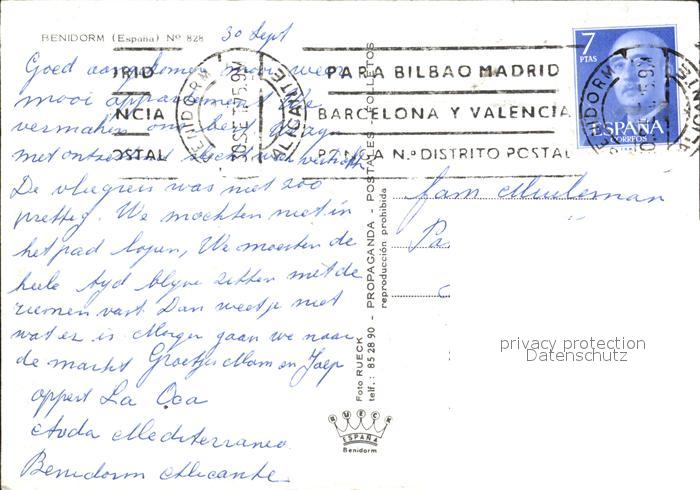 BENIDORM (España) Nº 828
30 Sept
Goed aangekomen mooi weer
mooi appartement We
vermaken ons best
met
De vliegreis was niet zoo
prettig. We mochten niet in
het pad lopen, We moesten de
heele tyd blyve zitten met de
riemen vast. Dan weet je niet
wat er is. Morge gaan we naar
de markt Groetjes Mam en Joep
appert La Oca
Avda Mediterraneo.
Benidorm Alicante
RID
NCIA
OSTAL
BENIDORM
ALICANTE
PARA BILBAO MADRID
BARCELONA Y VALENCIA
PONGA N.º DISTRITO POSTAL
7
PTAS
ESPAÑA
CORREOS
BENIDORM
fam Meuleman
Pa
Foto RUECK
telf.: 85 28 90 - PROPAGANDA - POSTALES - FOLLETOS
reproducción prohibida
RUECK
ESPAÑA
Benidorm
privacy protection
Datenschutz